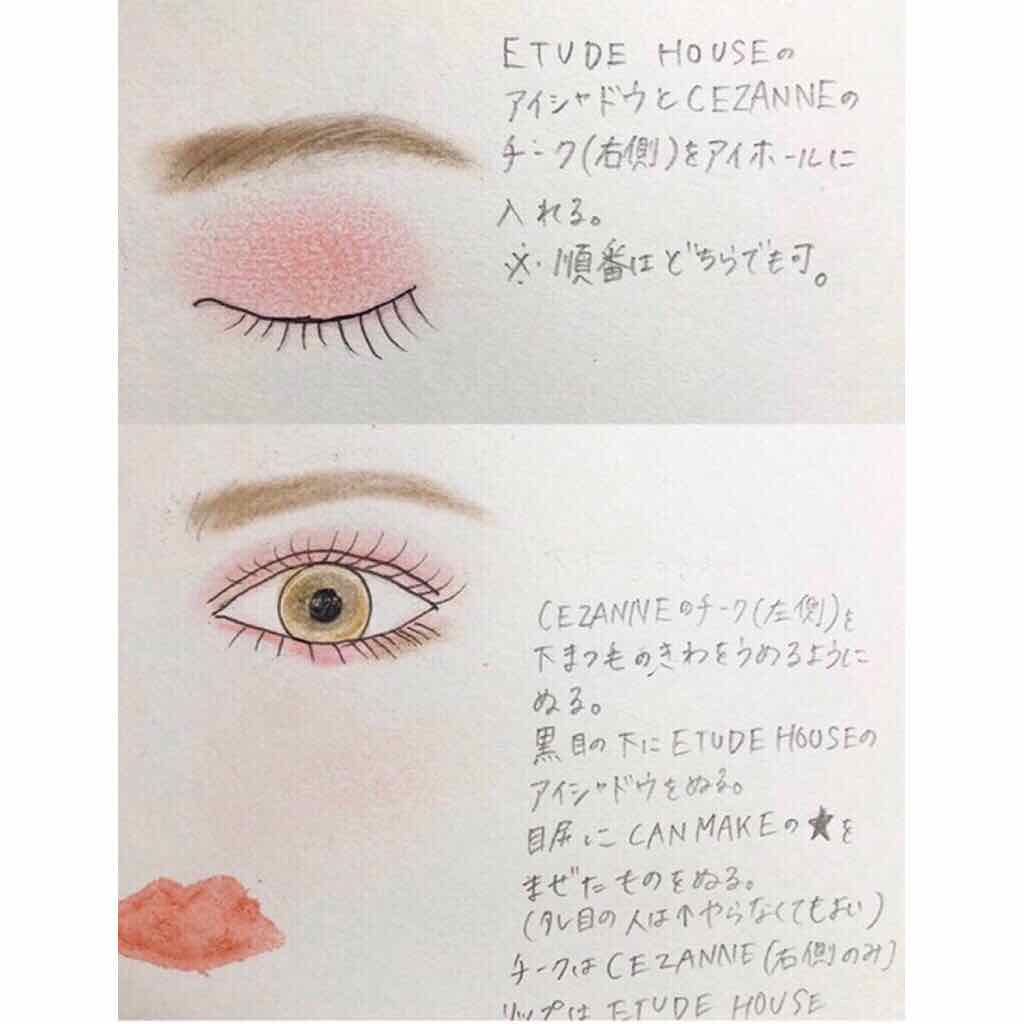 ETUDE HOUSEの
アイシャドウとCEZANNEの
チーク(右側)をアイホールに
入れる。
※順番はどちらでも可。
CEZANNEのチーク(左側)を
下まつ毛のきわをうめるように
ぬる。
黒目の下にETUDE HOUSEの
アイシャドウをぬる。
目尻にCANMAKEの★を
まぜたものをぬる。
(タレ目の人は↑やらなくてもよい)
チークはCEZANNE(右側のみ)
リップはETUDE HOUSE